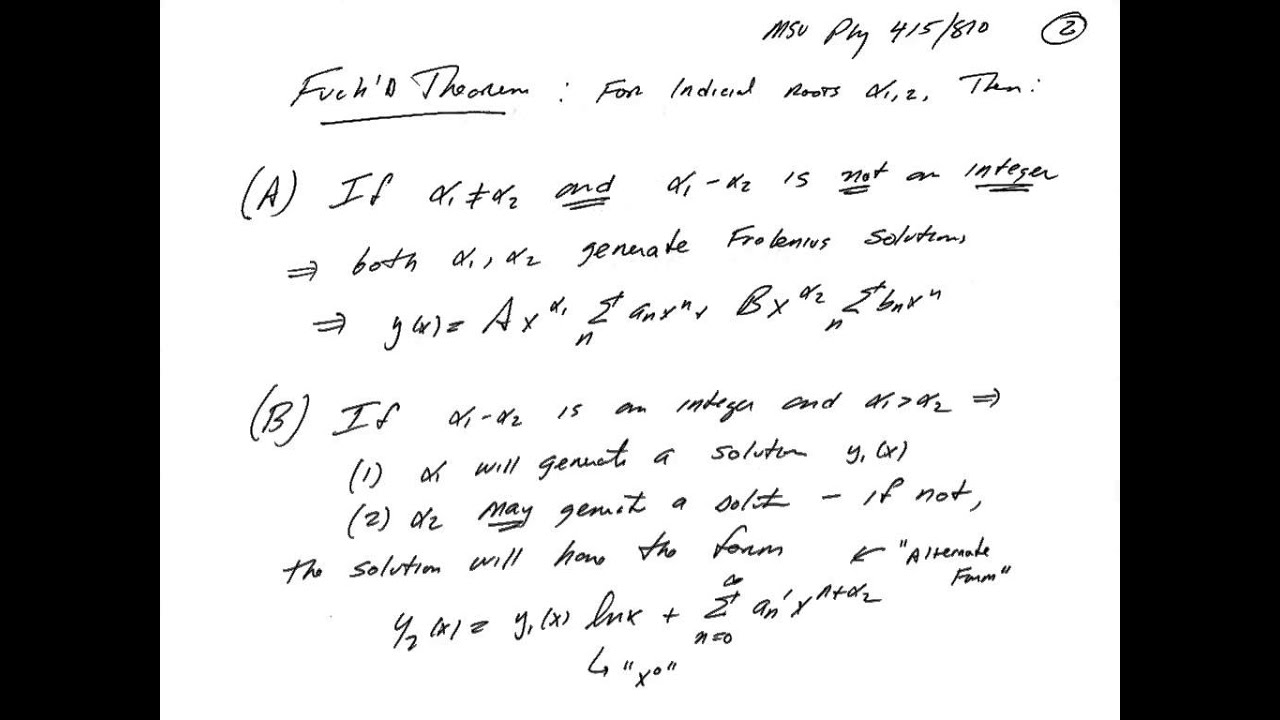 MSU Phy 415/810 ②
Fuch's Theorem : For Indicial Roots α₁,₂, Then:
(A) If α₁ ≠ α₂ and α₁ - α₂ is not an integer
⇒ both α₁, α₂ generate Frobenius solutions
⇒ y(x) = A x^α₁ Σₙ aₙxⁿ + B x^α₂ Σₙ bₙxⁿ
(B) If α₁ - α₂ is an integer and α₁ > α₂ ⇒
(1) α₁ will generate a solution y₁(x)
(2) α₂ may generate a solution - if not,
the solution will have the form ← "Alternate
Form"
y₂(x) = y₁(x) ln x + Σ_{n=0}^∞ aₙ' x^{n+α₂}
↳ "x⁰"